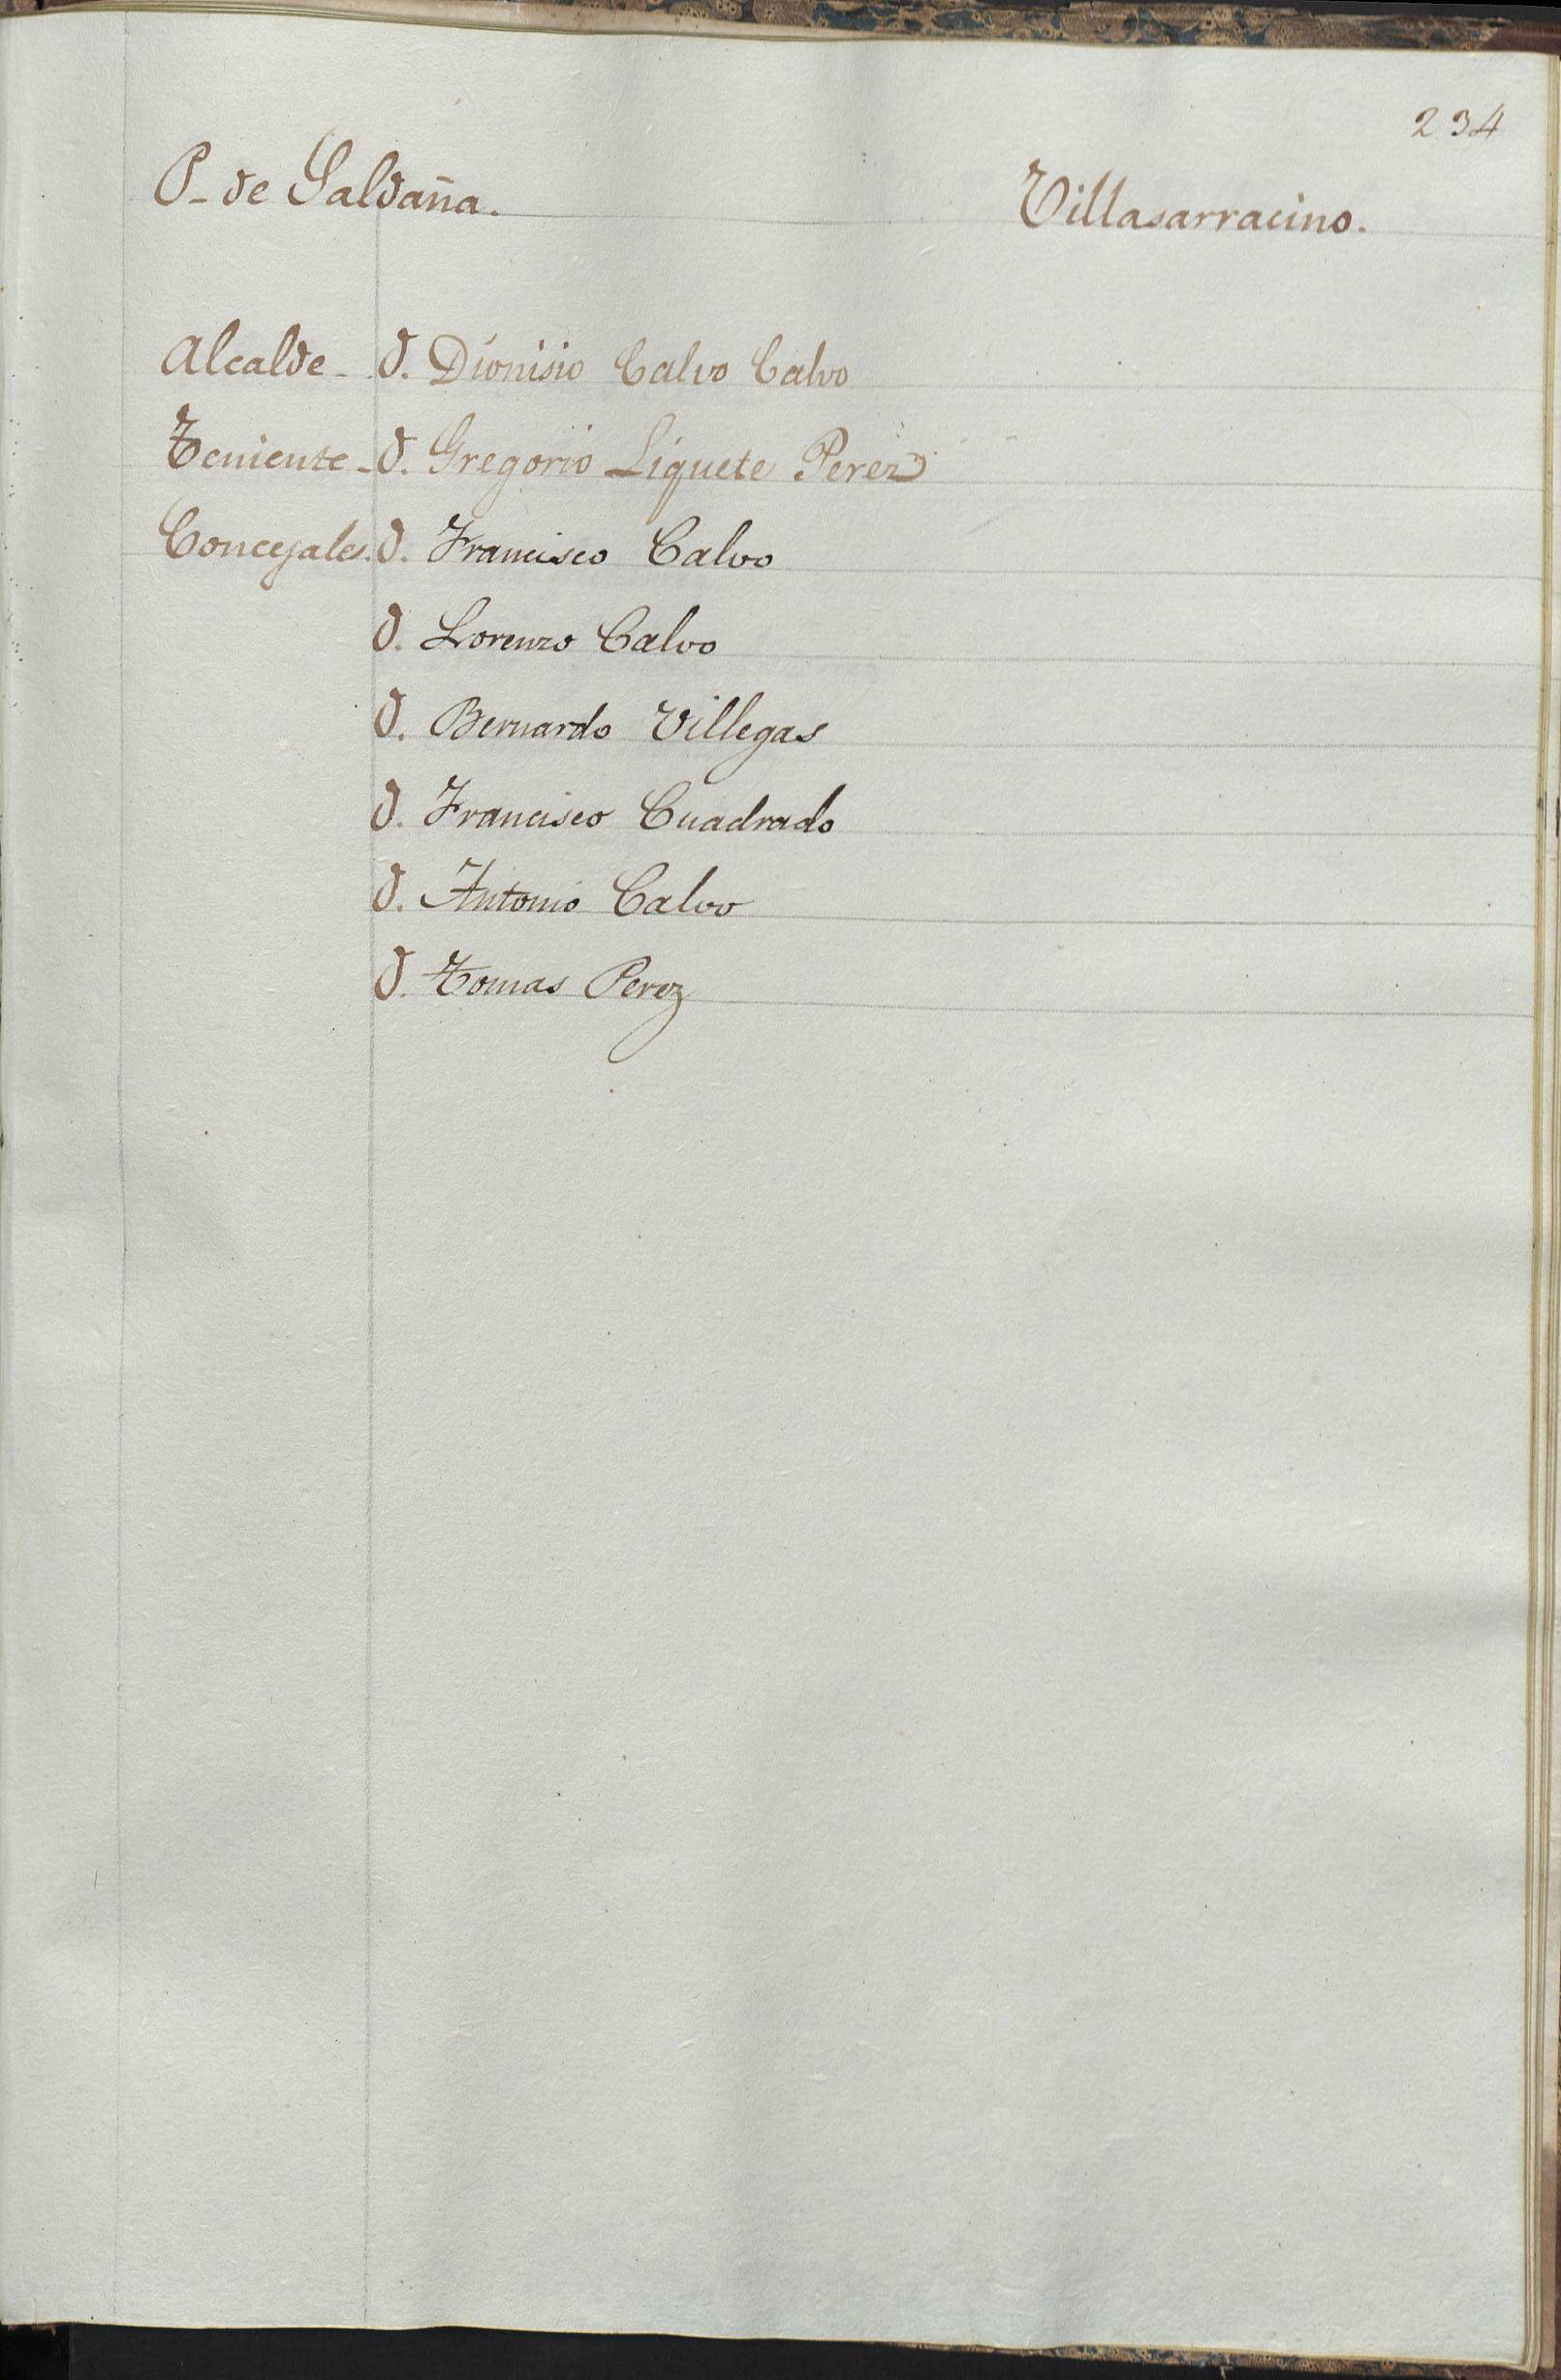 234
P- de Saldaña. Villasarracino.
Alcalde - D. Dionisio Calvo Calvo
Teniente - D. Gregorio Liquete Perez
Concejales. D. Francisco Calvo
D. Lorenzo Calvo
D. Bernardo Villegas
D. Francisco Cuadrado
D. Antonio Calvo
D. Tomas Perez